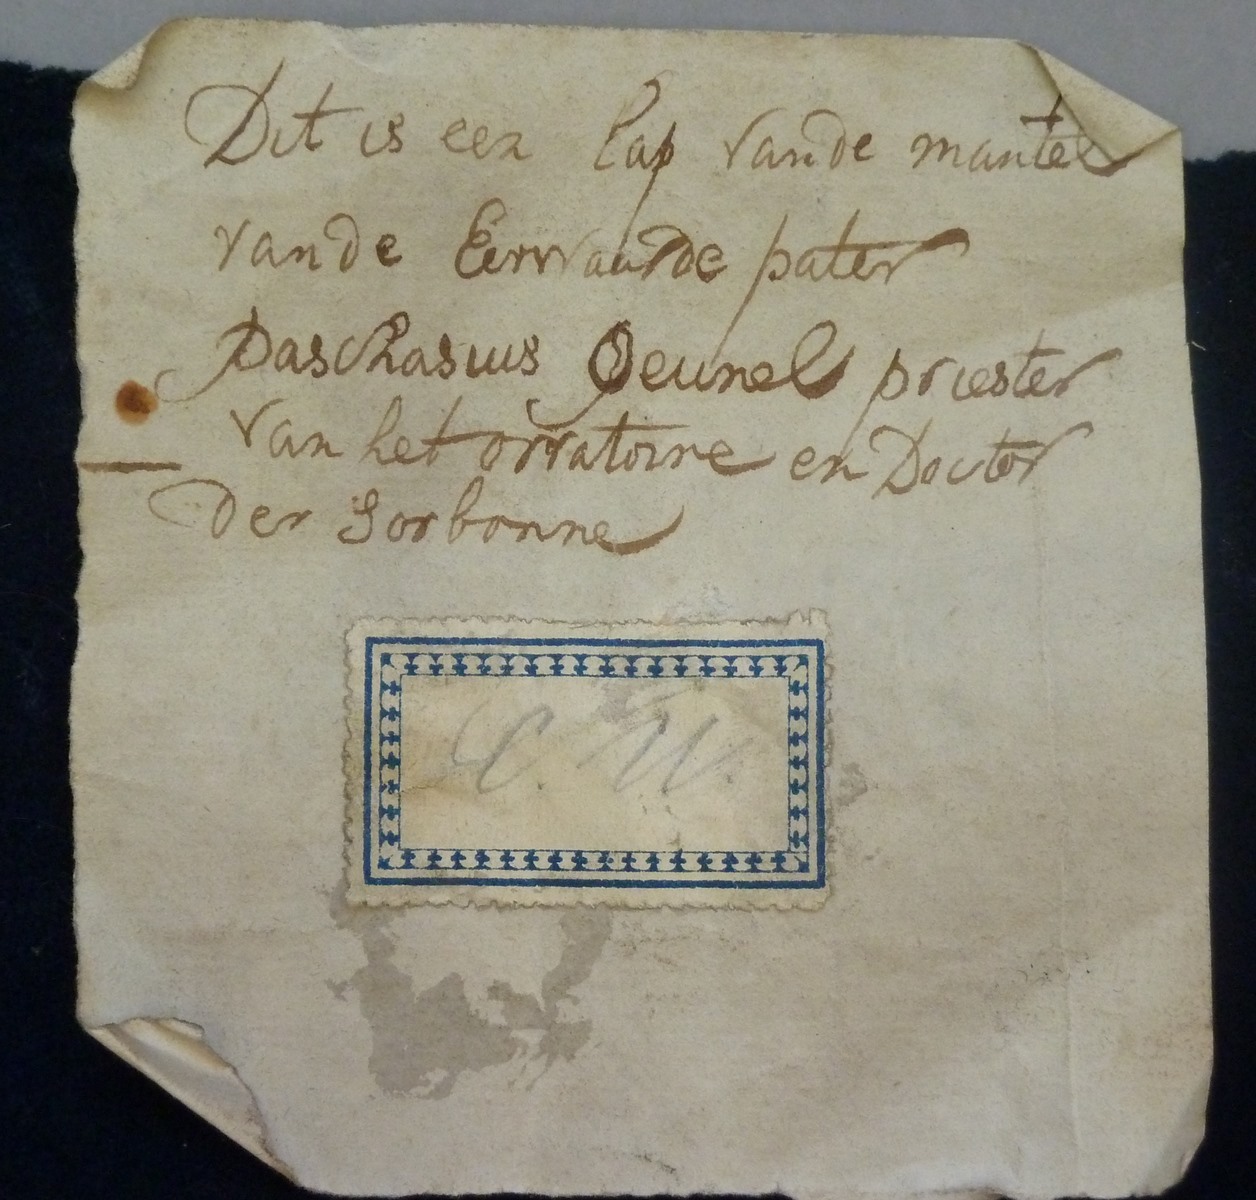 Dit is een lap vande mantel
vande Eerwaarde pater
Paschasius Qeunel priester
van het orratoire en Doctor
der Sorbonne